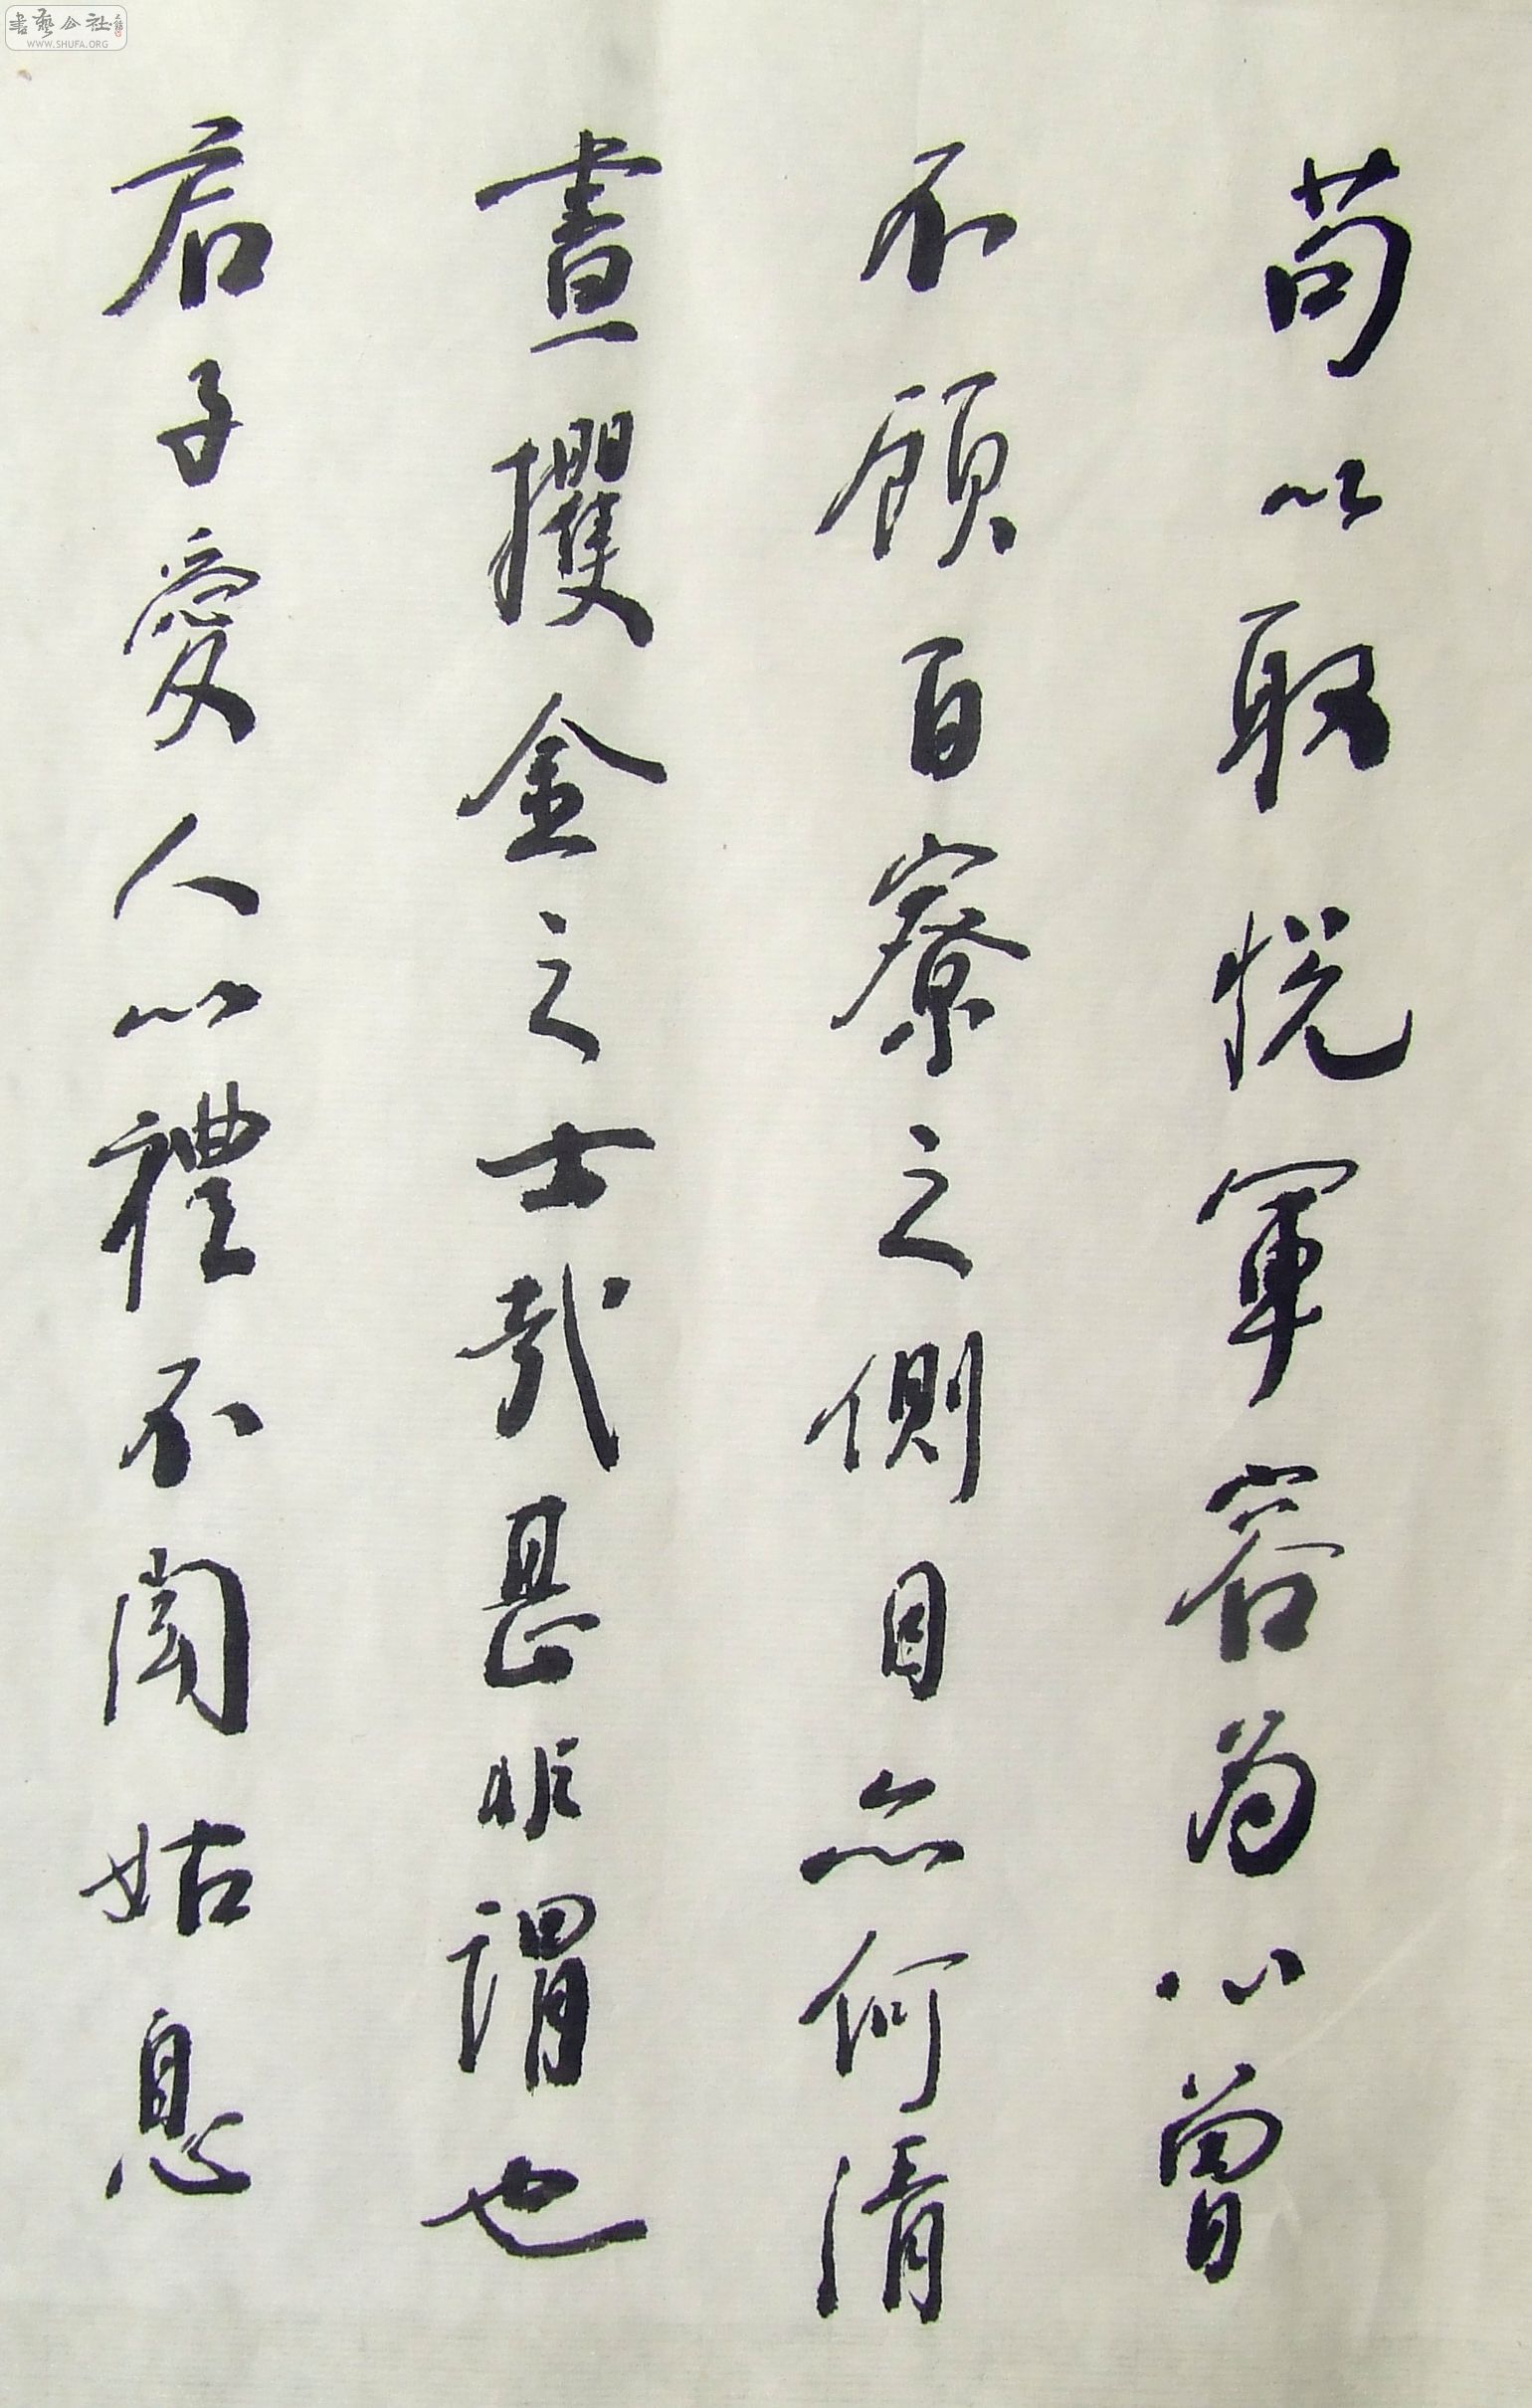 苟以取悅軍容為心曾
不顧百寮之側目亦何清
晝攫金之士哉甚非謂也
君子愛人以禮不聞姑息
書藝公社
WWW.SHUFA.ORG